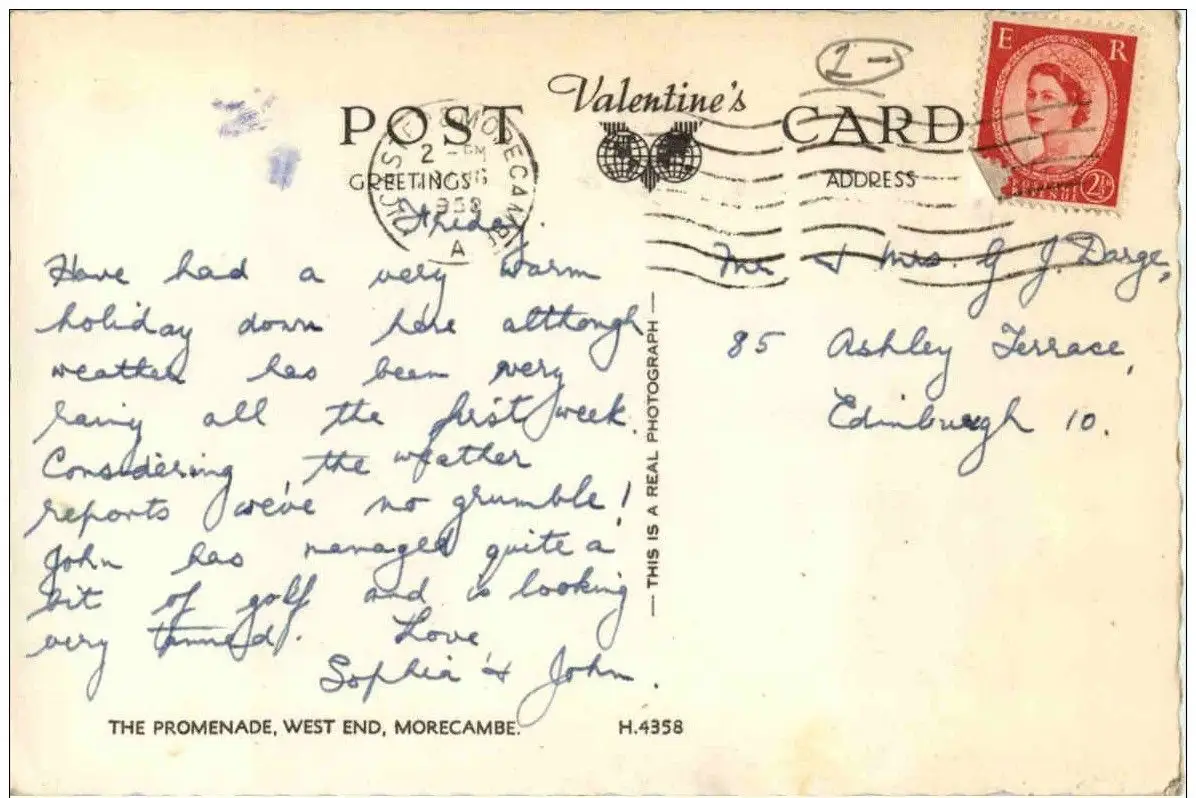 2 →
E R
2½D
POST Valentine's CARD
MORECAMBE
2 - PM
1958
A
GREETINGS
ADDRESS
Friday.
Have had a very warm
holiday down here although
weather has been very
rainy all the first week.
Considering the weather
reports we've no grumble!
John has managed quite a
bit of golf and is looking
very tanned. Love,
Sophia & John.
THE PROMENADE, WEST END, MORECAMBE. H.4358
— THIS IS A REAL PHOTOGRAPH —
Mr. & Mrs. G J. Darge,
85 Ashley Terrace,
Edinburgh 10.